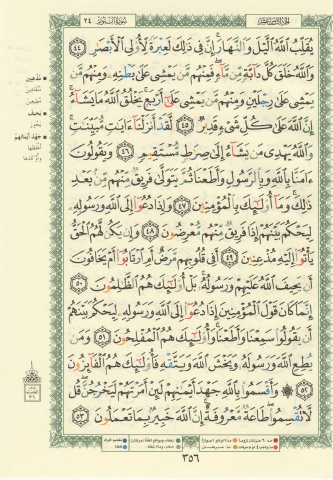 الجزء الثامن عشر
سورة النور ٢٤
يُقَلِّبُ اللَّهُ الَّيْلَ وَالنَّهَارَ إِنَّ فِي ذَٰلِكَ لَعِبْرَةً لِّأُولِي الْأَبْصَٰرِ ٤٤
وَاللَّهُ خَلَقَ كُلَّ دَابَّةٍ مِّن مَّاءٍ فَمِنْهُم مَّن يَمْشِي عَلَىٰ بَطْنِهِ وَمِنْهُم مَّن
يَمْشِي عَلَىٰ رِجْلَيْنِ وَمِنْهُم مَّن يَمْشِي عَلَىٰ أَرْبَعٍ يَخْلُقُ اللَّهُ مَا يَشَاءُ
إِنَّ اللَّهَ عَلَىٰ كُلِّ شَيْءٍ قَدِيرٌ ٤٥ لَّقَدْ أَنزَلْنَا ءَايَٰتٍ مُّبَيِّنَٰتٍ
وَاللَّهُ يَهْدِي مَن يَشَاءُ إِلَىٰ صِرَٰطٍ مُّسْتَقِيمٍ ٤٦ وَيَقُولُونَ
ءَامَنَّا بِاللَّهِ وَبِالرَّسُولِ وَأَطَعْنَا ثُمَّ يَتَوَلَّىٰ فَرِيقٌ مِّنْهُم مِّن بَعْدِ
ذَٰلِكَ وَمَا أُولَٰئِكَ بِالْمُؤْمِنِينَ ٤٧ وَإِذَا دُعُوا إِلَى اللَّهِ وَرَسُولِهِ
لِيَحْكُمَ بَيْنَهُمْ إِذَا فَرِيقٌ مِّنْهُم مُّعْرِضُونَ ٤٨ وَإِن يَكُن لَّهُمُ الْحَقُّ
يَأْتُوا إِلَيْهِ مُذْعِنِينَ ٤٩ أَفِي قُلُوبِهِم مَّرَضٌ أَمِ ارْتَابُوا أَمْ يَخَافُونَ
أَن يَحِيفَ اللَّهُ عَلَيْهِمْ وَرَسُولُهُ بَلْ أُولَٰئِكَ هُمُ الظَّٰلِمُونَ ٥٠
إِنَّمَا كَانَ قَوْلَ الْمُؤْمِنِينَ إِذَا دُعُوا إِلَى اللَّهِ وَرَسُولِهِ لِيَحْكُمَ بَيْنَهُمْ
أَن يَقُولُوا سَمِعْنَا وَأَطَعْنَا وَأُولَٰئِكَ هُمُ الْمُفْلِحُونَ ٥١ وَمَن
يُطِعِ اللَّهَ وَرَسُولَهُ وَيَخْشَ اللَّهَ وَيَتَّقْهِ فَأُولَٰئِكَ هُمُ الْفَائِزُونَ
٥٢ وَأَقْسَمُوا بِاللَّهِ جَهْدَ أَيْمَٰنِهِمْ لَئِنْ أَمَرْتَهُمْ لَيَخْرُجُنَّ قُل
لَّا تُقْسِمُوا طَاعَةٌ مَّعْرُوفَةٌ إِنَّ اللَّهَ خَبِيرٌ بِمَا تَعْمَلُونَ ٥٣
مذعنين
يحيف
يجور
جهد أيمانهم
٣٥٦